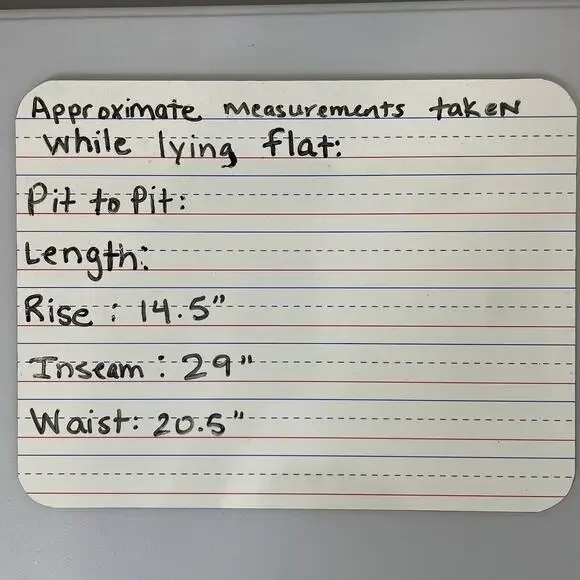 Approximate measurements taken
while lying flat:
Pit to Pit:
Length:
Rise : 14.5"
Inseam : 29"
Waist: 20.5"